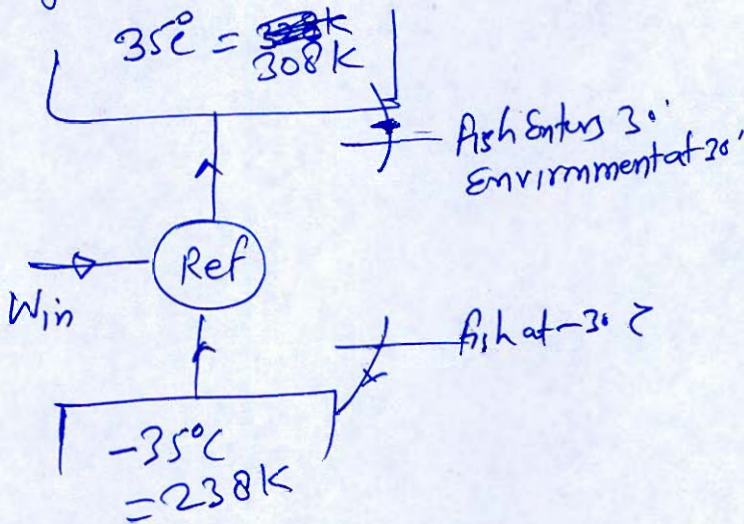 35°C = 308K
Fish Enters 30°
Environment at 30°
Ref
Win
Fish at -30°C
-35°C
= 238K